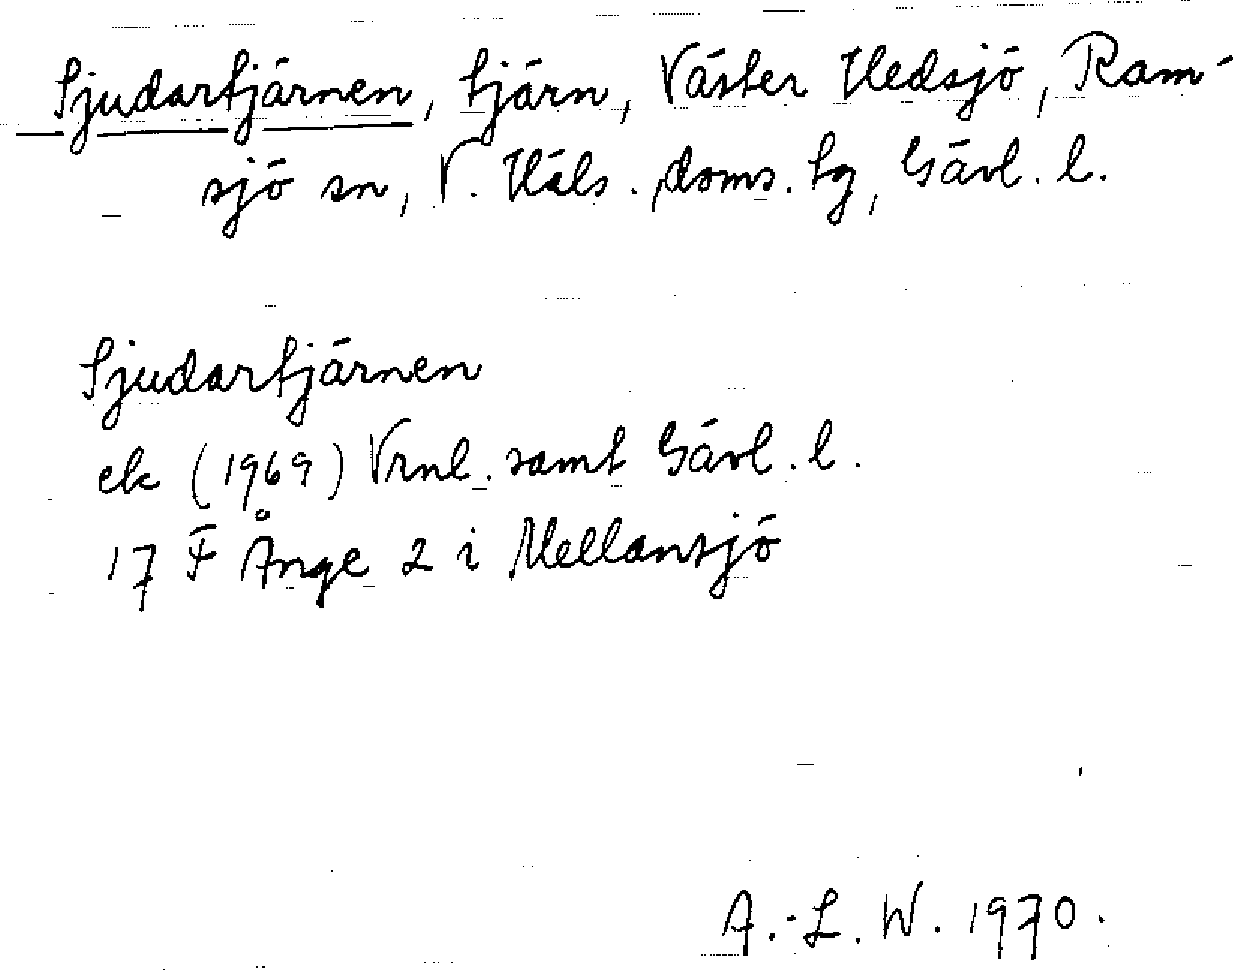 Tjudartjärnen, tjärn, Väster Hedsjö, Ram-
sjö sn, V. Häls. doms. tg, Gävl. l.
Tjudartjärnen
ek (1969) Vrnl. samt Gävl. l.
17 F Ånge 2 i Mellansjö
A.-L. W. 1970.